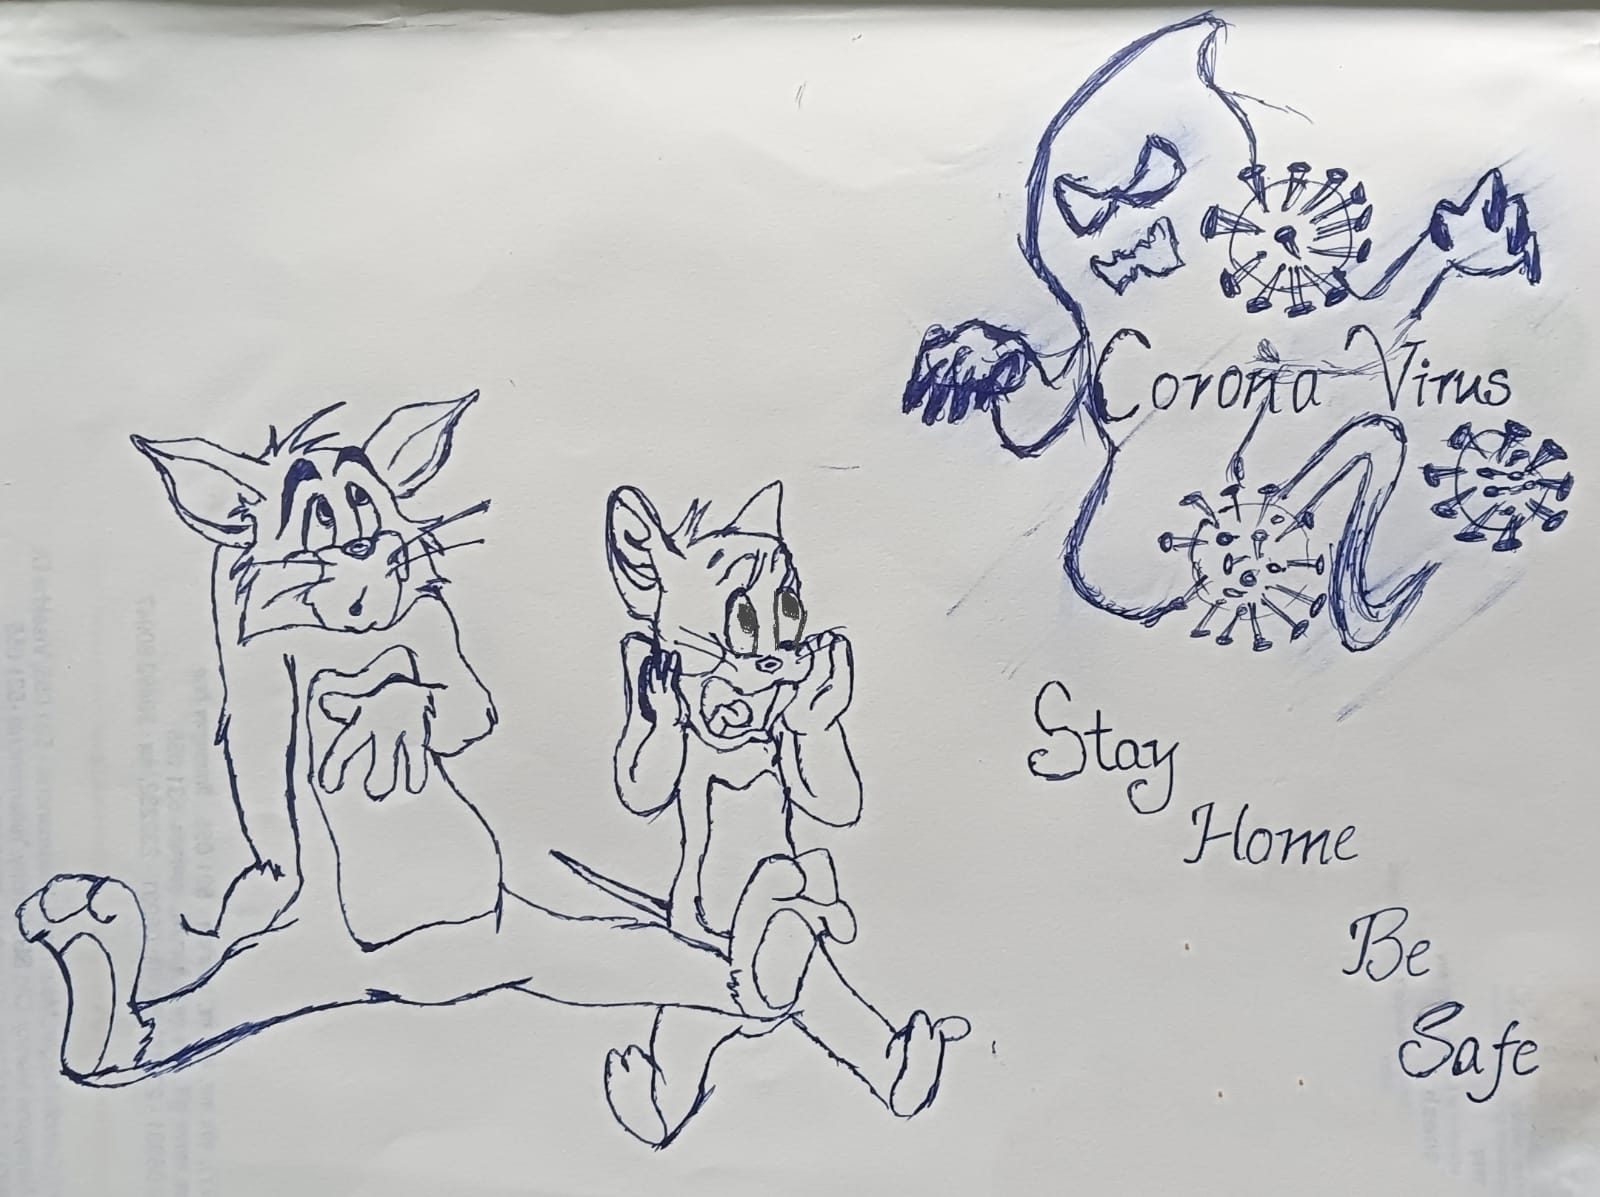 Corona Virus
Stay
Home
Be
Safe